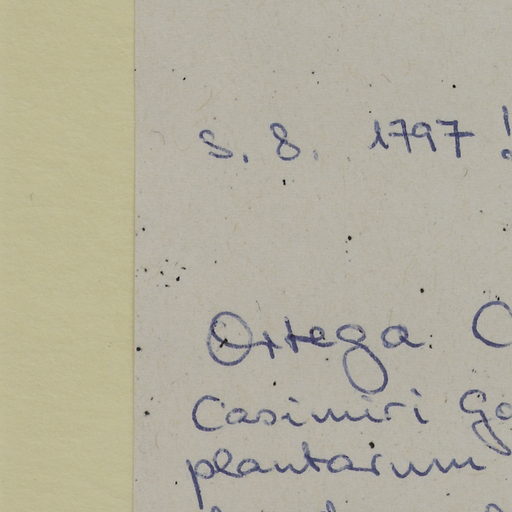 S. 8. 1797!
Ortega.
Casimiri
plantarum